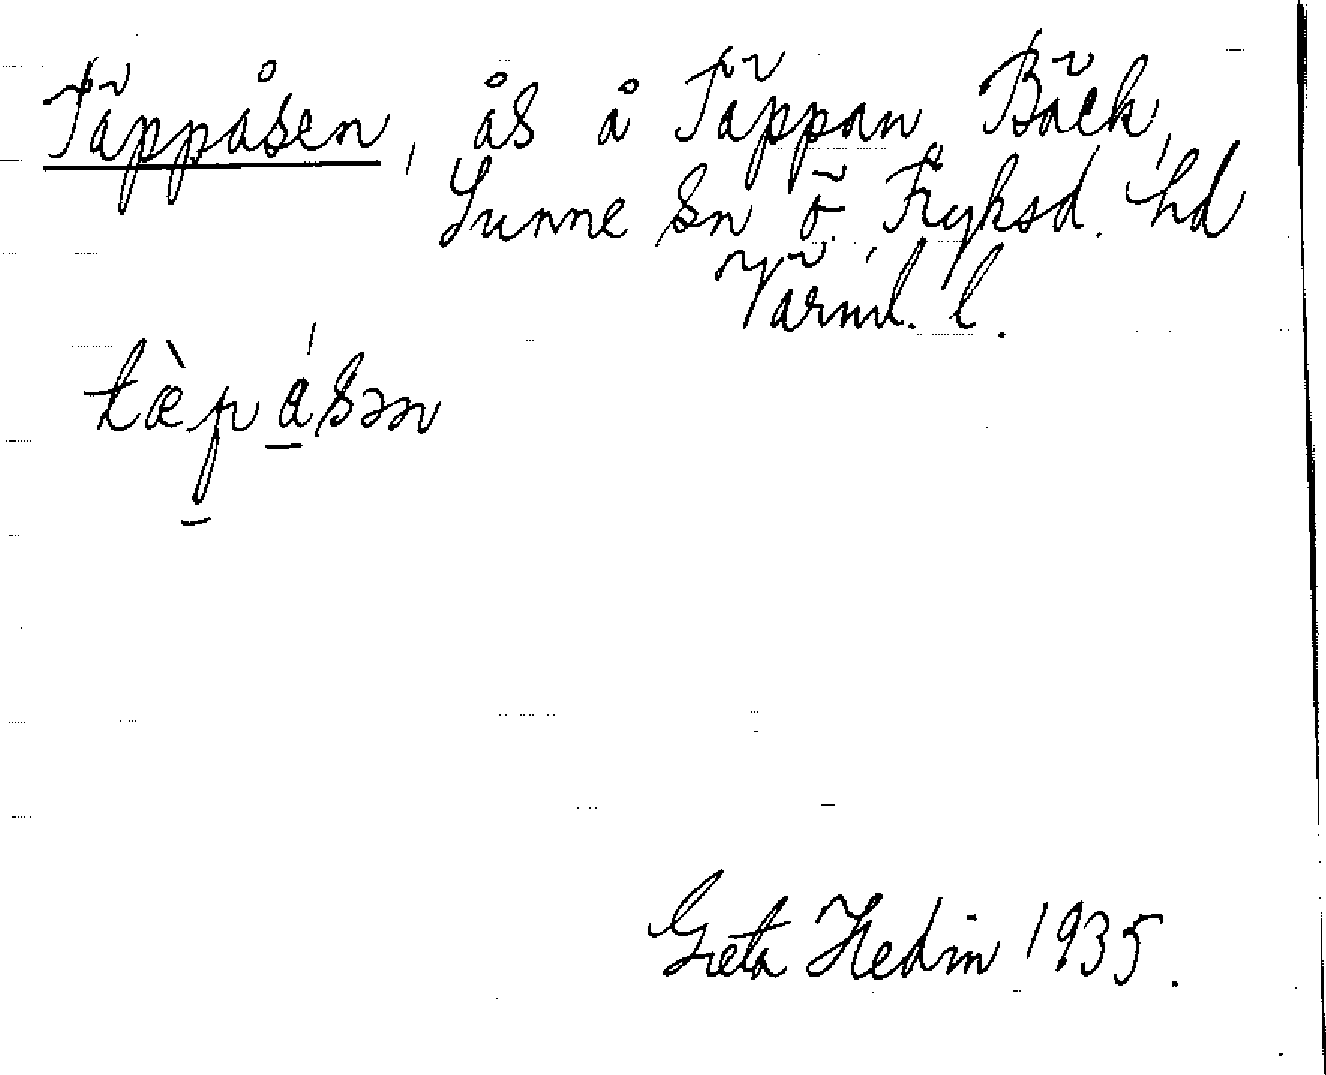 Täppåsen, ås å Täppan, Bäck,
Sunne sn ö. Fryksd. hd
Värml. l.
tæ̀p̱a̱̍sən
Greta Hedin 1935.